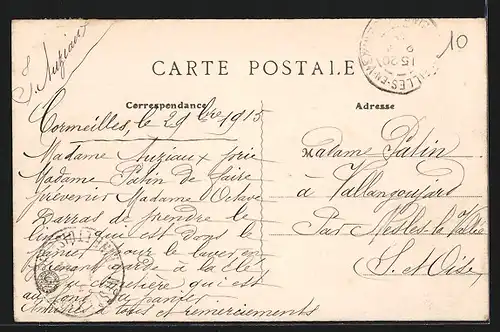 J. Auziaux
10
CARTE POSTALE
Correspondance
Adresse
Cormeilles, le 29 bre 1915
Madame Auziaux prie
Madame Patin de faire
prévenir Madame Octave
Barras de prendre le
linge qui est dans le
panier pour le laver en
prenant garde à la clé
qui est
au fond du panier
Amitiés à tous et remerciements
Madame Patin
à Vallangoujard
Par Nesles-la-Vallée
S. et Oise